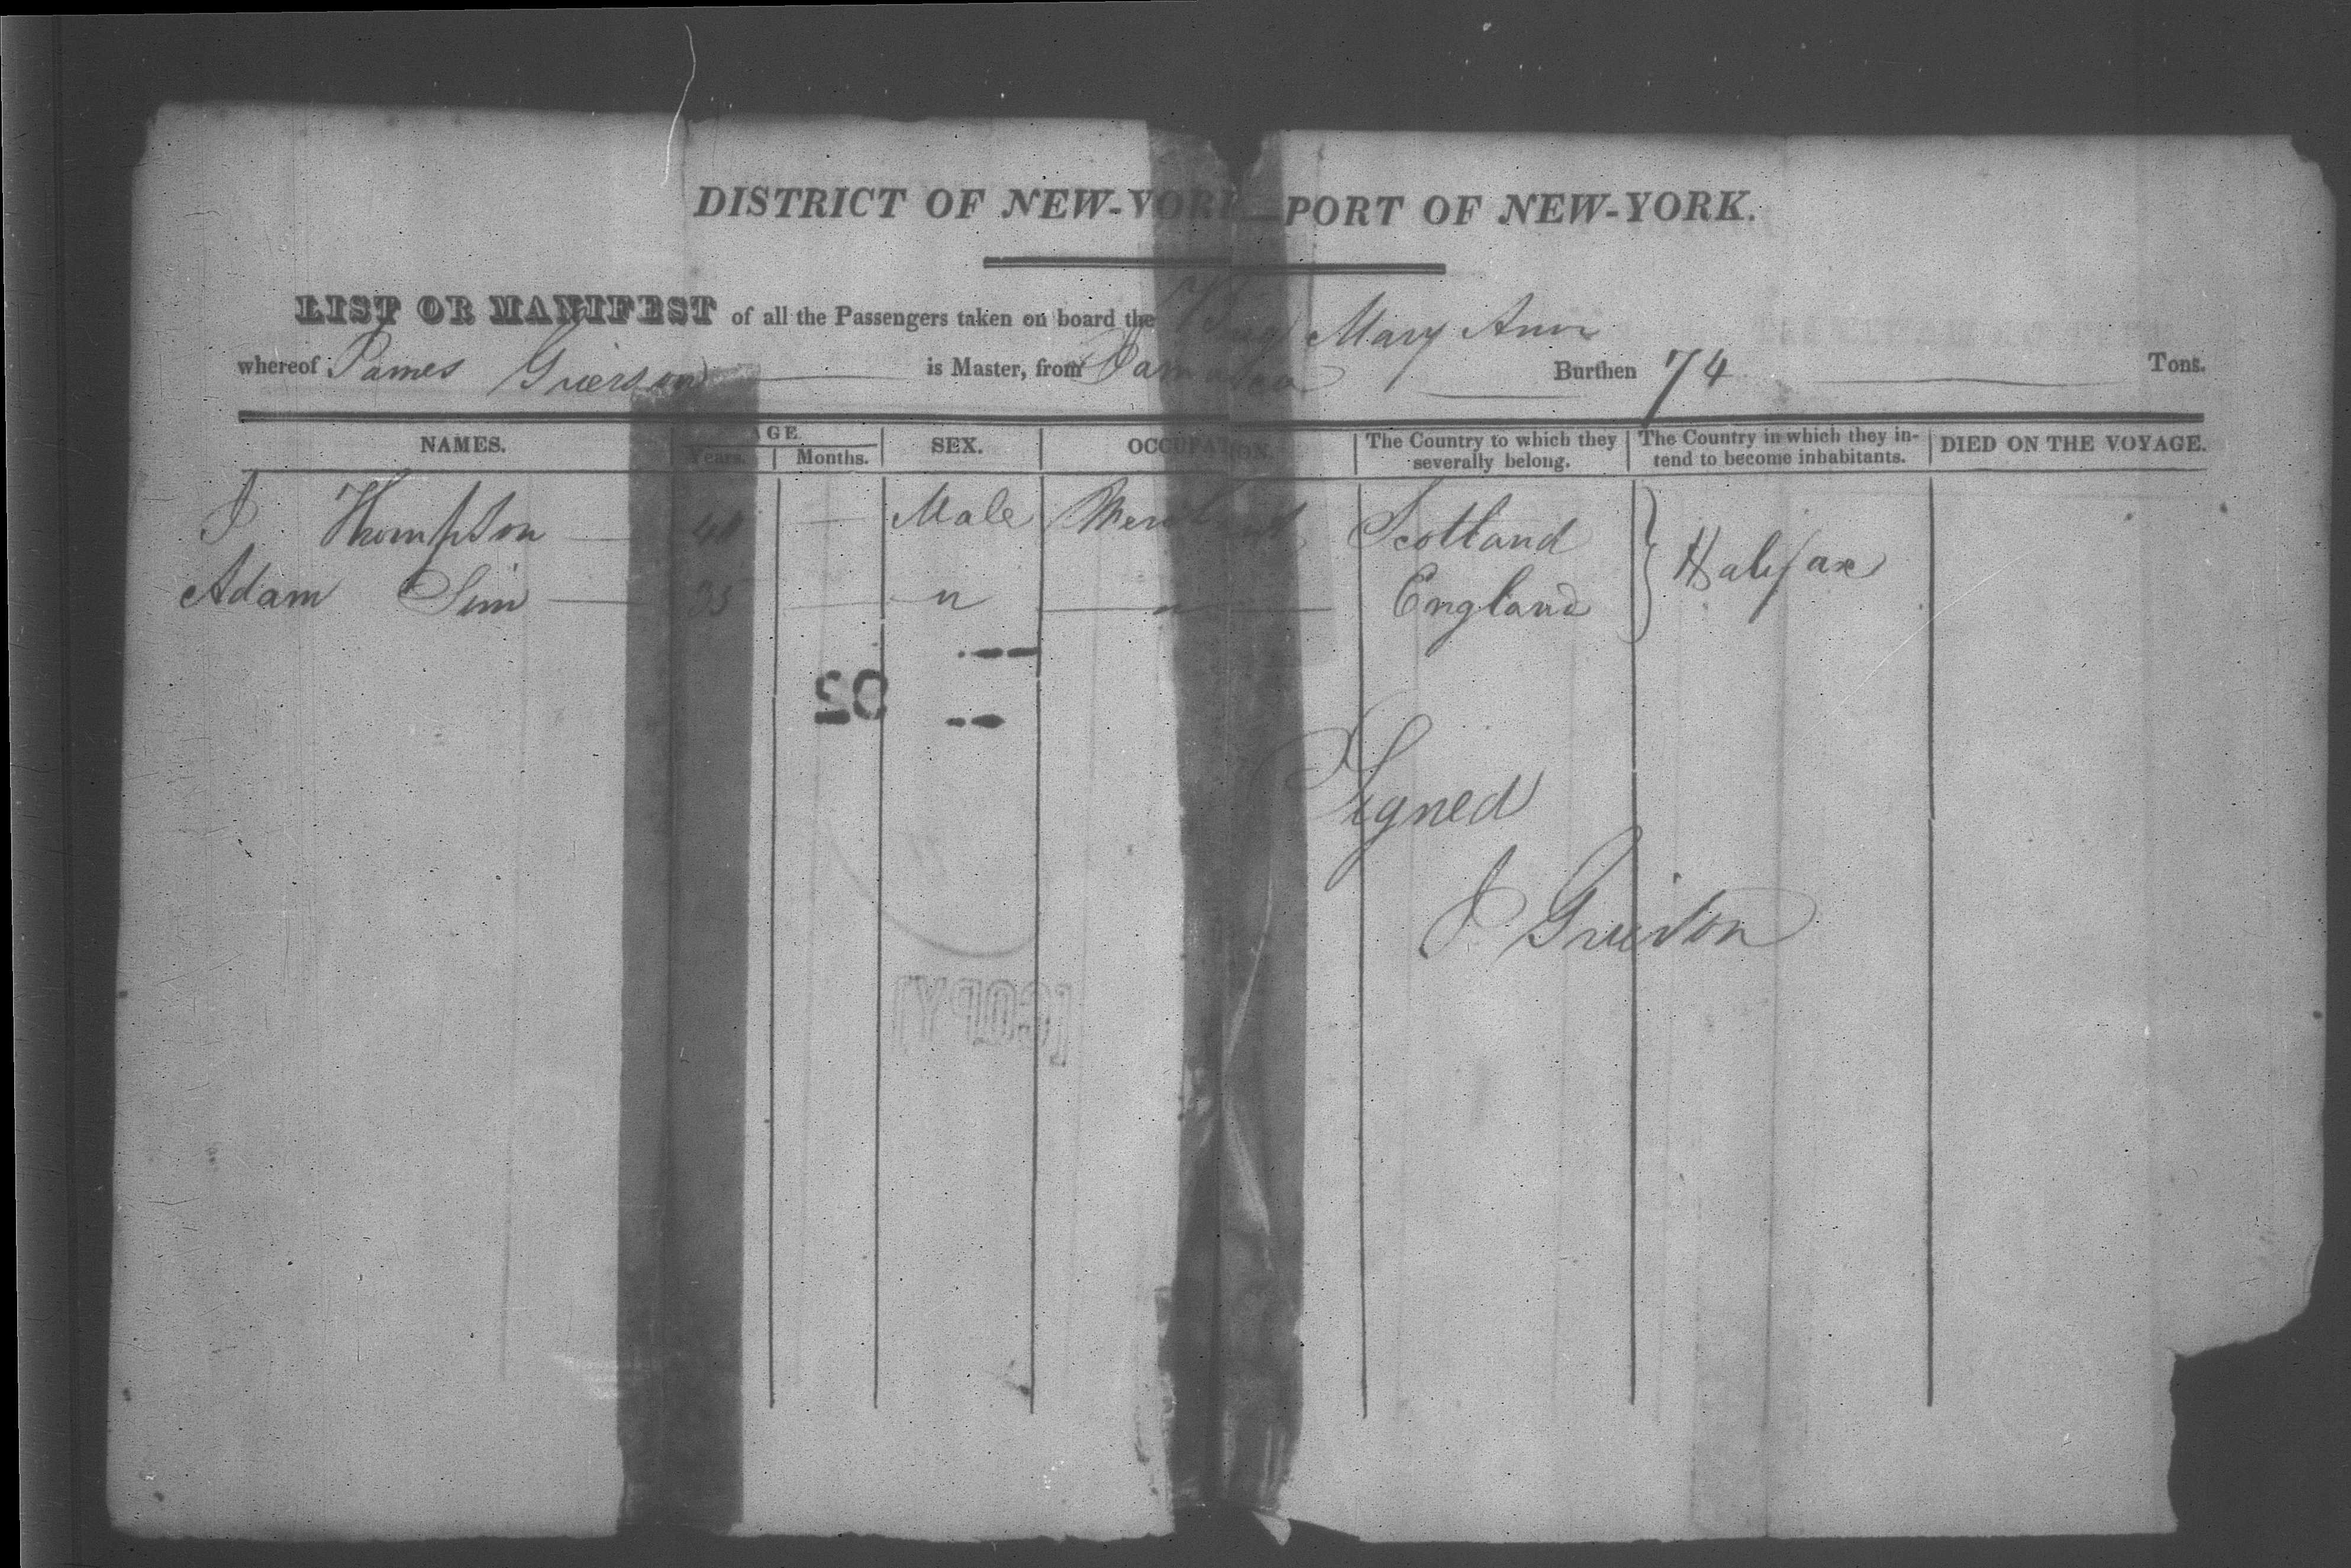 DISTRICT OF NEW-YORK—PORT OF NEW-YORK.
LIST OR MANIFEST of all the Passengers taken on board the Brig Mary Ann
whereof James Grierson is Master, from Jamaica Burthen 74 Tons.
NAMES. AGE. Years. Months. SEX. OCCUPATION. The Country to which they severally belong. The Country in which they intend to become inhabitants. DIED ON THE VOYAGE.
J Thompson — 40 — Male Merchant Scotland
Halifax
Adam Sim — 35 — " — " — England
Signed
J Grierson
[COPY]